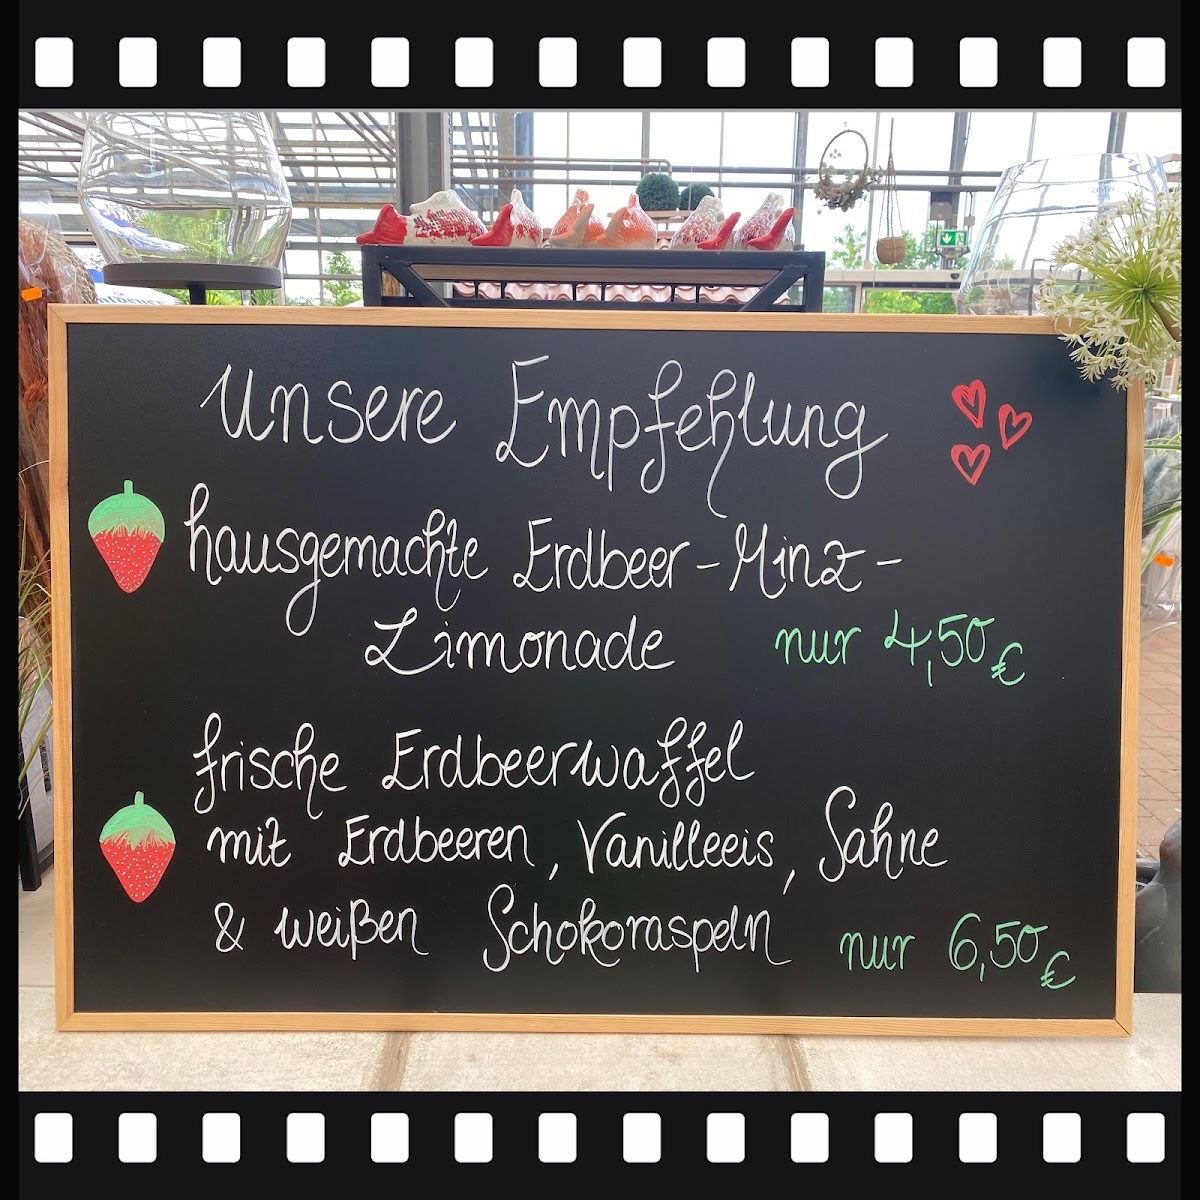 Unsere Empfehlung
hausgemachte Erdbeer-Minz-
Limonade nur 4,50€
frische Erdbeerwaffel
mit Erdbeeren, Vanilleeis, Sahne
& weißen Schokoraspeln nur 6,50€